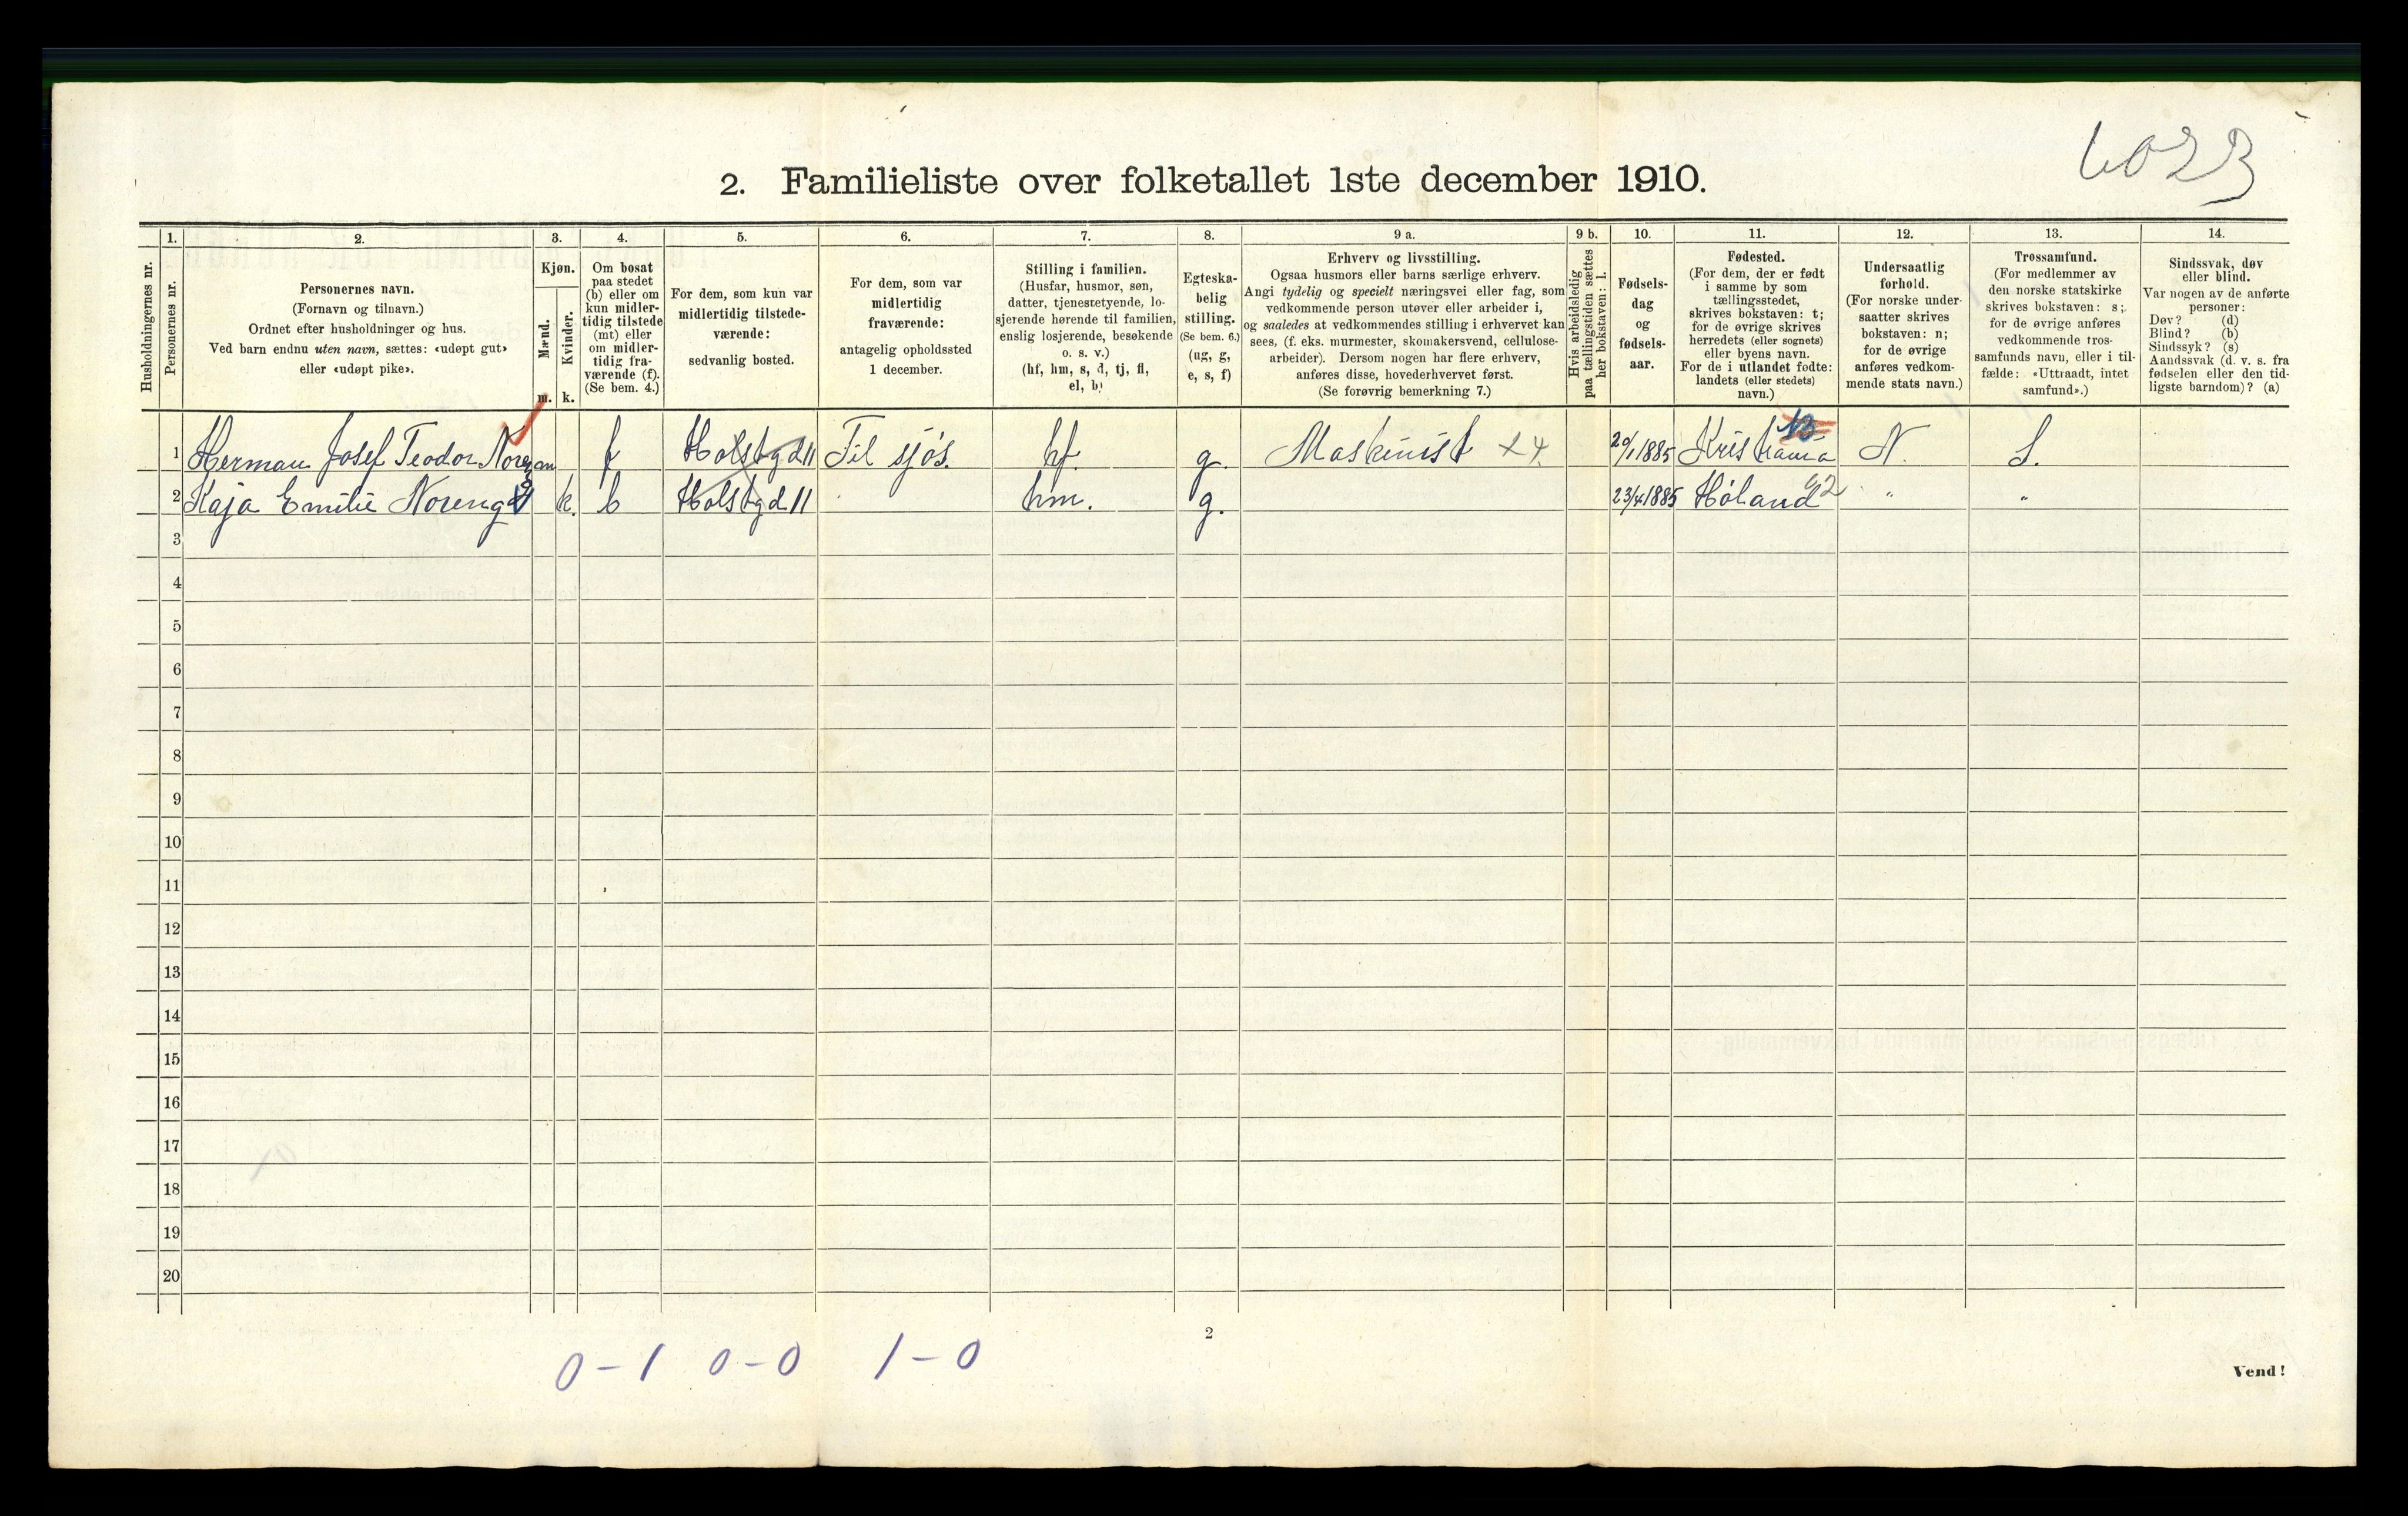 6023
2. Familieliste over folketallet 1ste december 1910.
Husholdningernes nr.
1.
Personernes nr.
2.
Personernes navn.
(Fornavn og tilnavn.)
Ordnet efter husholdninger og hus.
Ved barn endnu uten navn, sættes: «udøpt gut»
eller «udøpt pike».
3.
Kjøn.
Mænd.
m.
Kvinder.
k.
4.
Om bosat
paa stedet
(b) eller om
kun midler-
tidig tilstede
(mt) eller
om midler-
tidig fra-
værende (f).
(Se bem. 4.)
5.
For dem, som kun var
midlertidig tilstede-
værende:
sedvanlig bosted.
6.
For dem, som var
midlertidig
fraværende:
antagelig opholdssted
1 december.
7.
Stilling i familien.
(Husfar, husmor, søn,
datter, tjenestetyende, lo-
sjerende hørende til familien,
enslig losjerende, besøkende
o. s. v.)
(hf, hm, s, d, tj, fl,
el, b)
8.
Egteska-
belig
stilling.
(Se bem. 6.)
(ug, g,
e, s, f)
9 a.
Erhverv og livsstilling.
Ogsaa husmors eller barns særlige erhverv.
Angi tydelig og specielt næringsvei eller fag, som
vedkommende person utøver eller arbeider i,
og saaledes at vedkommendes stilling i erhvervet kan
sees, (f. eks. murmester, skomakersvend, cellulose-
arbeider). Dersom nogen har flere erhverv,
anføres disse, hovederhvervet først.
(Se forøvrig bemerkning 7.)
9 b.
Hvis arbeidsledig
paa tællingstiden sættes
her bokstaven: l.
10.
Fødsels-
dag
og
fødsels-
aar.
11.
Fødested.
(For dem, der er født
i samme by som
tællingsstedet,
skrives bokstaven: t;
for de øvrige skrives
herredets (eller sognets)
eller byens navn.
For de i utlandet fødte:
landets (eller stedets)
navn.)
12.
Undersaatlig
forhold.
(For norske under-
saatter skrives
bokstaven: n;
for de øvrige
anføres vedkom-
mende stats navn.)
13.
Trossamfund.
(For medlemmer av
den norske statskirke
skrives bokstaven: s;
for de øvrige anføres
vedkommende tros-
samfunds navn, eller i til-
fælde: «Uttraadt, intet
samfund».)
14.
Sindssvak, døv
eller blind.
Var nogen av de anførte
personer:
Døv? (d)
Blind? (b)
Sindssyk? (s)
Aandssvak (d. v. s. fra
fødselen eller den tid-
ligste barndom)? (a)
1 Herman Josef Teodor Noreng m f Holstgd 11 Til sjøs. hf. g. Maskinist x 4. 20/1 1885 Kristiania 13 N. S.
2 Kaja Emilie Noreng k. b Holstgd 11 hm. g. 23/4 1885 Høland 92 " "
3
4
5
6
7
8
9
10
11
12
13
14
15
16
17
18
19
20
2
0-1 0-0 1-0
Vend!